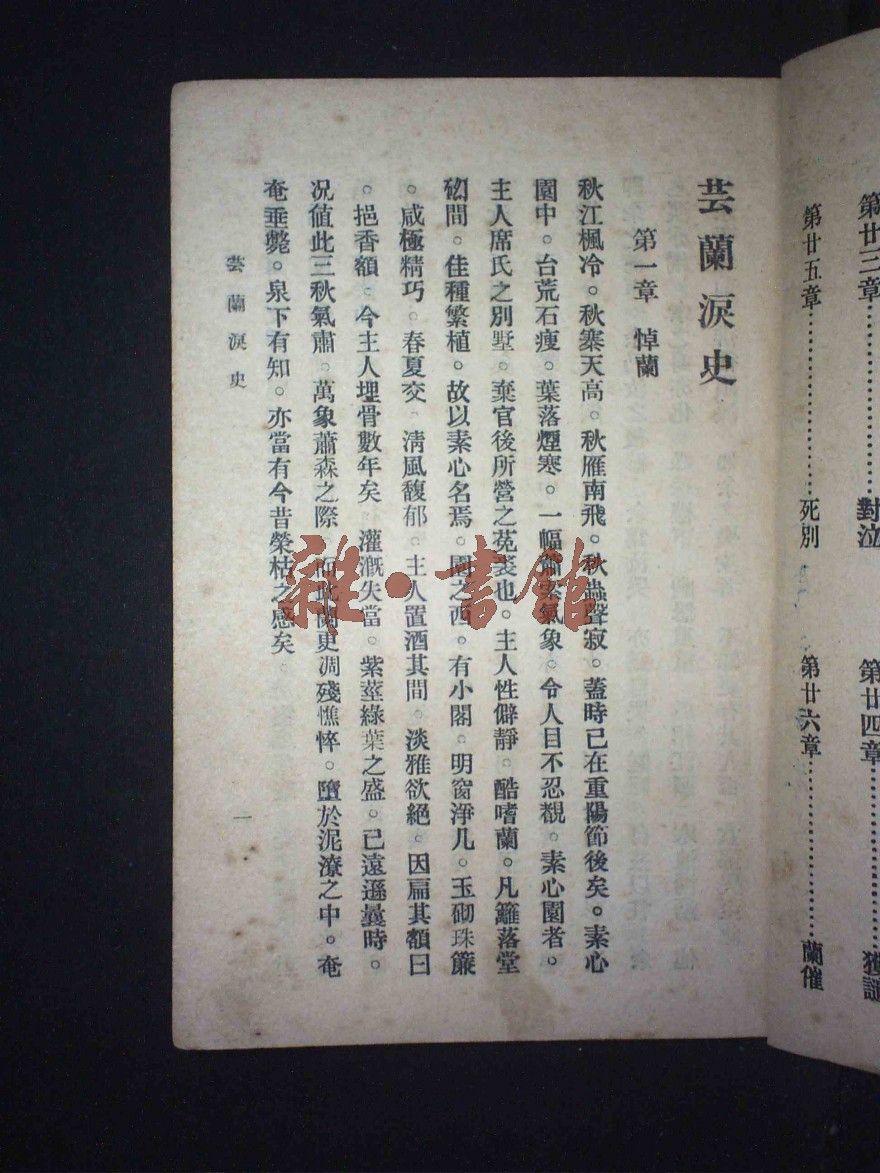 第廿三章……………對泣
第廿四章……………獲譴
第廿五章……………死別
第廿六章……………蘭催
芸蘭淚史
第一章 悼蘭
秋江楓冷。秋寨天高。秋雁南飛。秋蟲聲寂。蓋時已在重陽節後矣。素心
園中。台荒石瘦。葉落煙寒。一幅蕭索氣象。令人目不忍覩。素心園者。
主人席氏之別墅。棄官後所營之菟裘也。主人性僻靜。酷嗜蘭。凡籬落堂
砌間。佳種繁植。故以素心名焉。園之西。有小閣。明窗淨几。玉砌珠簾
。咸極精巧。春夏交。清風馥郁。主人置酒其間。淡雅欲絕。因扁其額曰
。挹香額。今主人埋骨數年矣。灌漑失當。紫莖綠葉之盛。已遠遜曩時。
况値此三秋氣肅。萬象蕭森之際。而此閣更凋殘憔悴。墮於泥潦之中。奄
奄垂斃。泉下有知。亦當有今昔榮枯之感矣。
芸蘭淚史
一
雜·書館